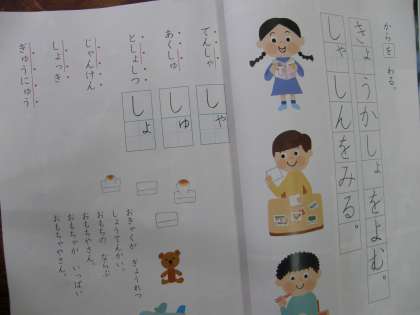 からをわる。
きょうかしょをよむ。
しゃしんをみる。
てんしゃ
あくしゅ
としょしつ
じゃんけん
しょっき
ぎゅうにゅう
しゃ
しゅ
しょ
おきゃくが ぎょうれつ
しょうてんがい。
おもちの ならぶ
おもちやさん。
おもちゃが いっぱい
おもちゃやさん。